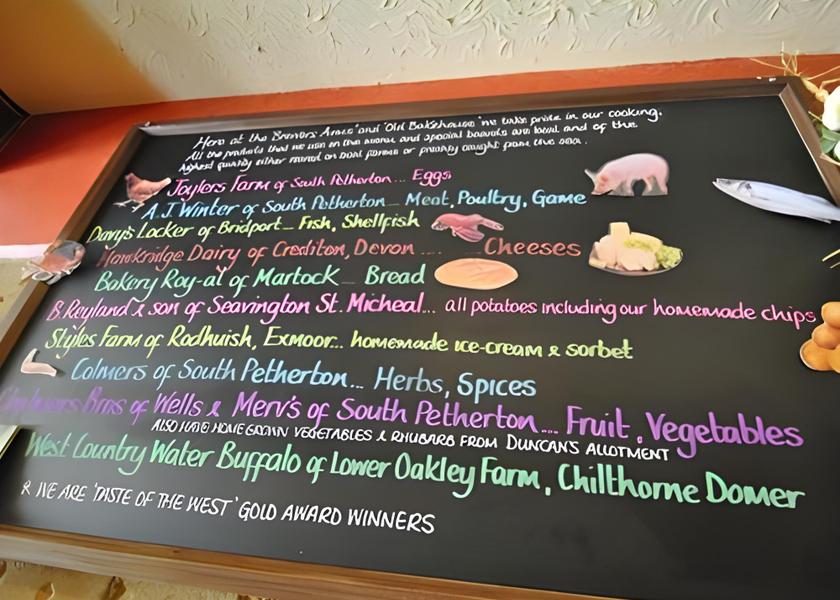 Here at the Brewers Arms and 'Old Bakehouse' we take pride in our cooking.
All the products that we use on the menu and special boards are local and of the
highest quality either reared on local farms or freshly caught from the sea.
Joylers Farm of South Petherton... Eggs
A.J Winter of South Petherton... Meat, Poultry, Game
Davy's Locker of Bridport... Fish, Shellfish
Hawkridge Dairy of Crediton, Devon .... Cheeses
Bakery Roy-al of Martock... Bread
B. Reyland & son of Seavington St. Micheal... all potatoes including our homemade chips
Styles Farm of Rodhuish, Exmoor... homemade ice-cream & sorbet
Colmers of South Petherton... Herbs, Spices
Bros of Wells & Merv's of South Petherton.... Fruit, Vegetables
ALSO HAVE HOME GROWN VEGETABLES & RHUBARB FROM DUNCAN'S ALLOTMENT
West Country Water Buffalo of Lower Oakley Farm, Chilthorne Domer
& WE ARE 'TASTE OF THE WEST' GOLD AWARD WINNERS